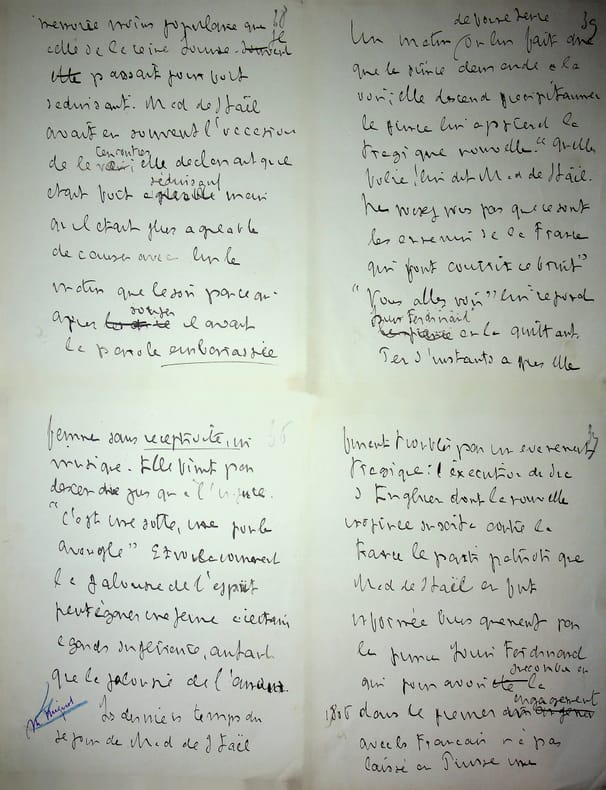 femme sans receptivité, ni 36
musique. Elle vint pour
descendre jusqu'à l'injure.
"C'est une sotte, une poule
aveugle" Et voila comment
la jalousie de l'esprit
peut égarer une femme a certains
egards superieure, autant
que la jalousie de l'amour.
Les derniers temps du
sejour de Mad de Staël
37
furent troublés par un evenement
tragique: l'éxécution du duc
d'Enghien dont la nouvelle
suscita contre la
France le parti patriotique
Mad de Staël en fut
informée brusquement par
le prince Louis Ferdinand
succombé en
qui pour avoir la
engagement
1806 dans le premier
avec les Francais n'a pas
laissé en Prusse une
38
memoire moins populaire que
celle de la reine Louise.
passait pour fort
seduisant. Mad de Staël
avait eu souvent l'occasion
rencontrer
de le elle declarait que
séduisant
etait fort mais
qu'il etait plus agreable
de causer avec lui le
matin que le soir parce qu'
souper
apres il avait
la parole embarrassée
39
de bonne heure
Un matin on lui fait dire
que le prince demande a la
voir; elle descend precipitamment
le prince lui apprend la
tragique nouvelle. "Quelle
folie! lui dit Mad de Staël.
Ne voyez vous pas que ce sont
les ennemis de la France
qui font courir ce bruit"
"Vous allez voir" lui repond
Louis Ferdinand
en la quittant.
Peu d'instants apres elle